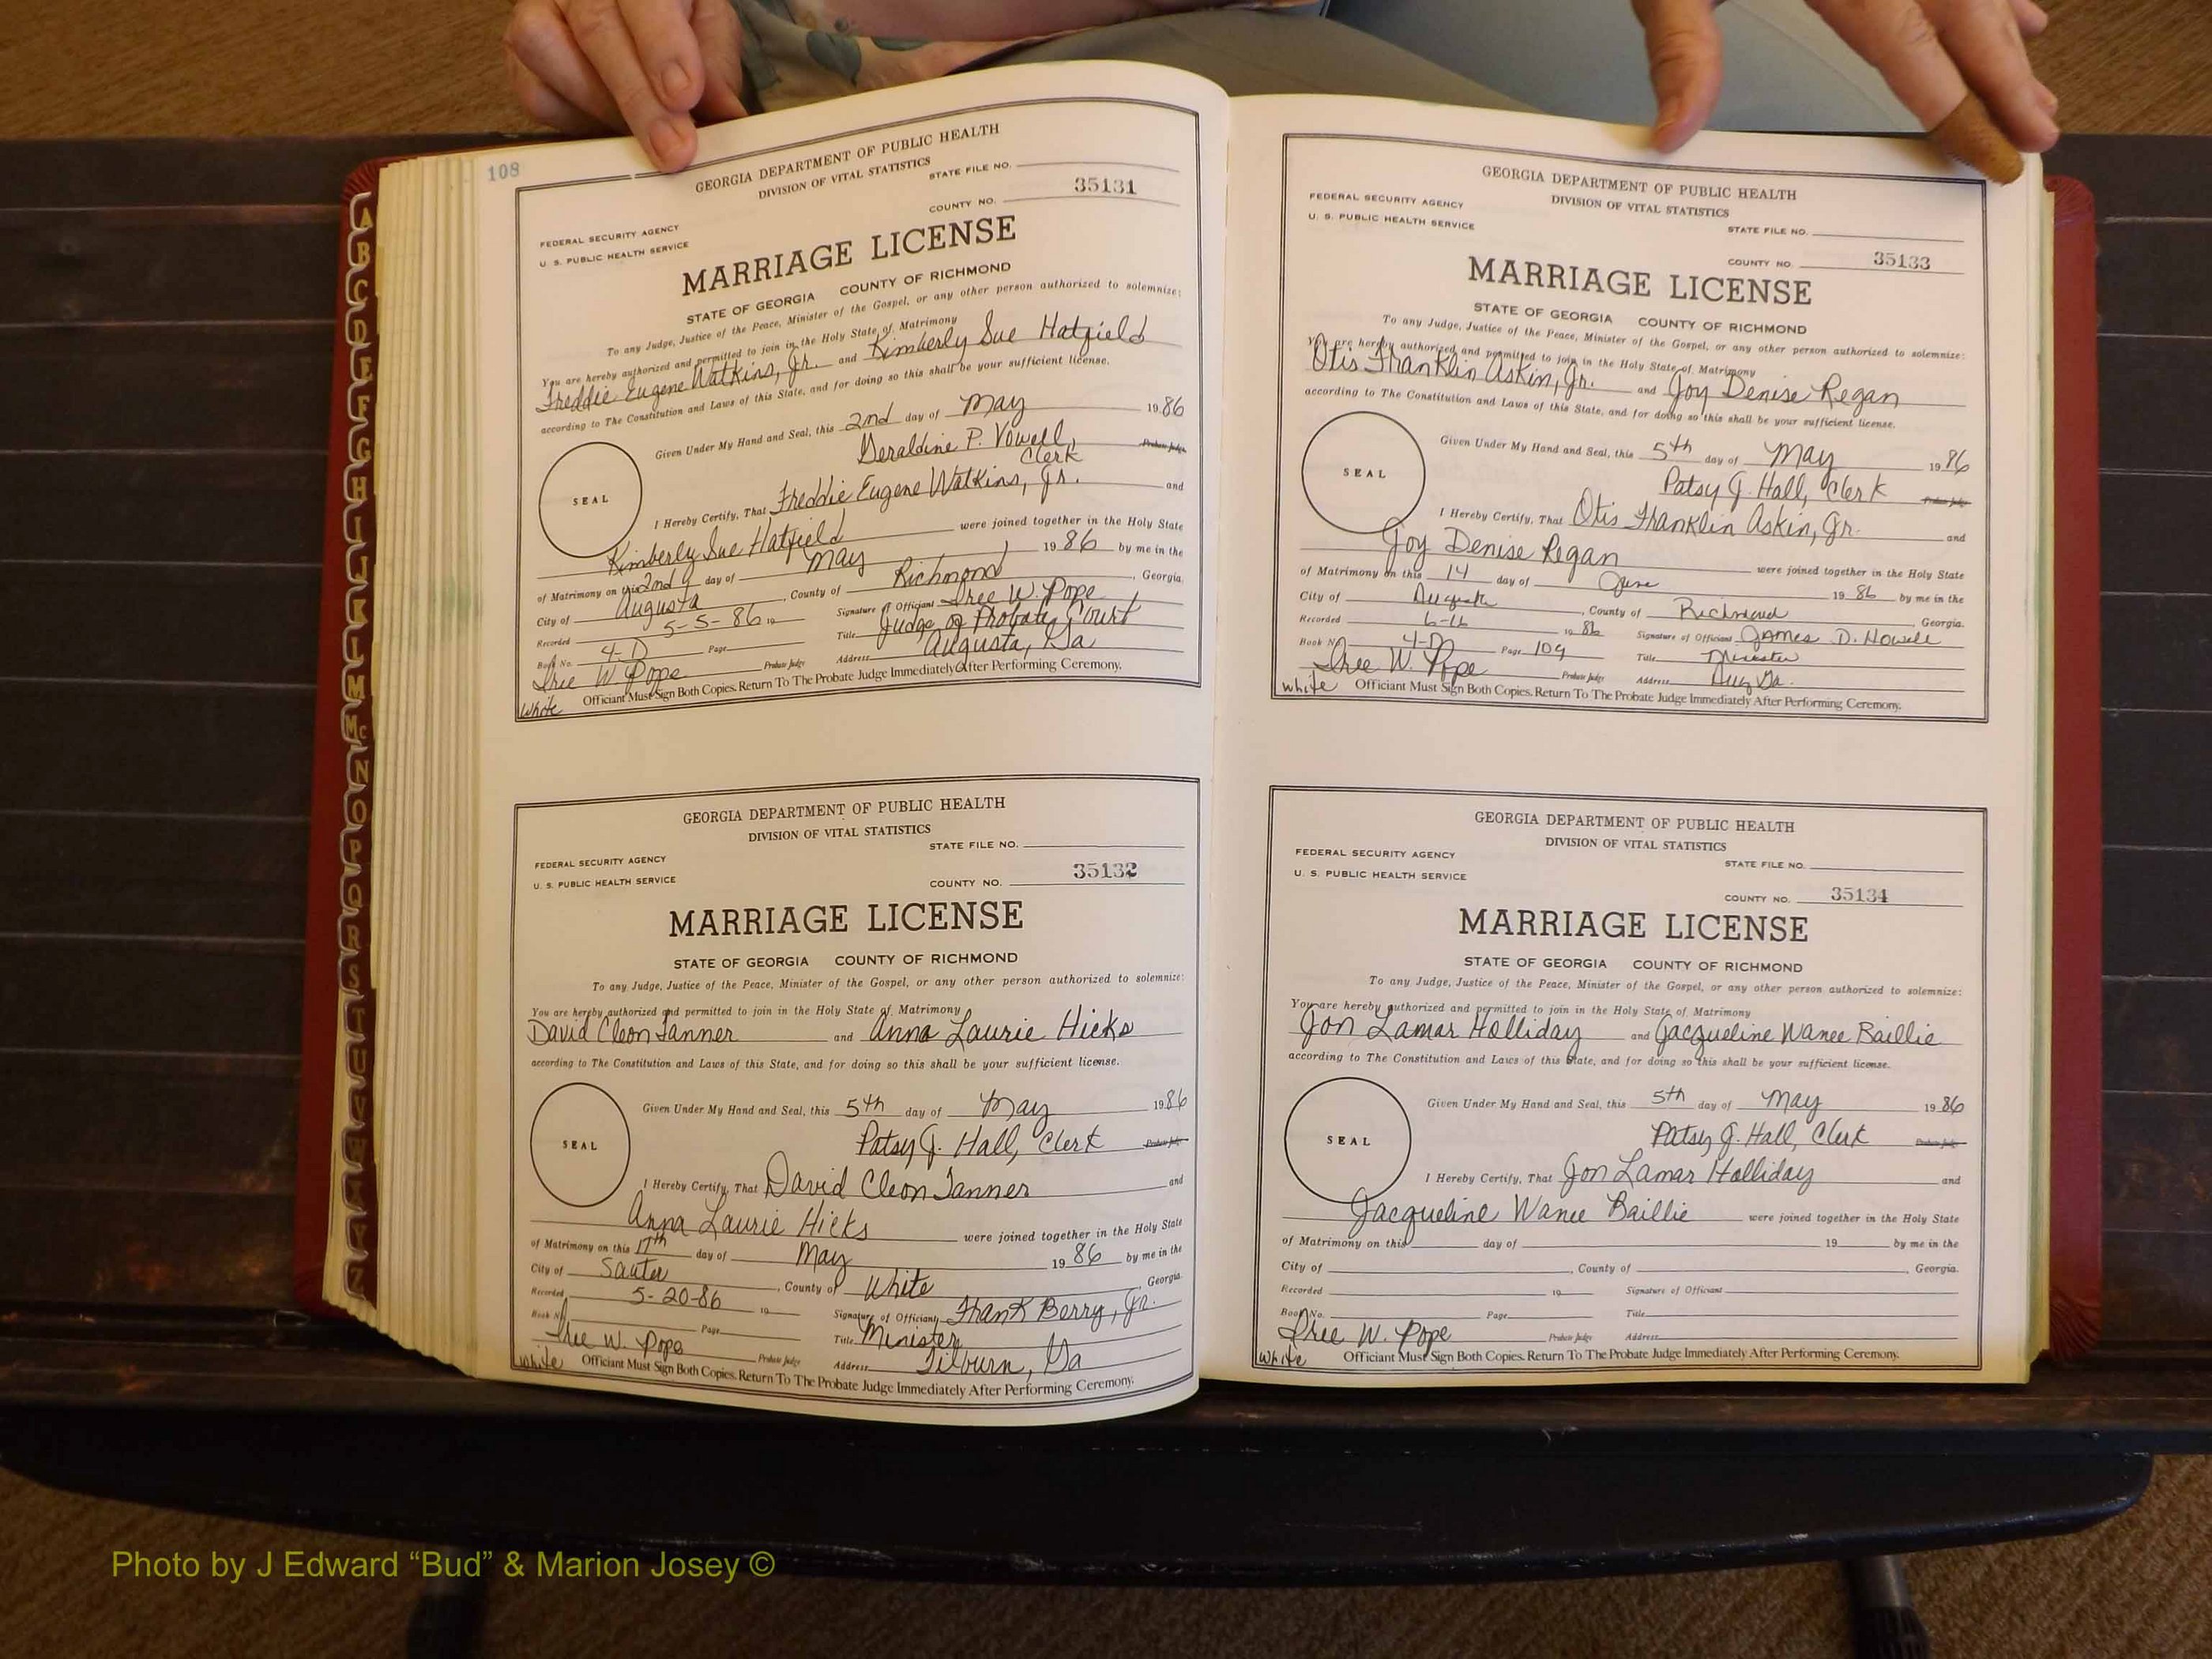 108
A
B
C
D
E
F
G
H
I
J
K
L
M
Mc
N
O
P
Q
R
S
T
U
V
W
X
Y
Z
GEORGIA DEPARTMENT OF PUBLIC HEALTH
DIVISION OF VITAL STATISTICS
STATE FILE NO.
35131
COUNTY NO.
FEDERAL SECURITY AGENCY
U. S. PUBLIC HEALTH SERVICE
MARRIAGE LICENSE
STATE OF GEORGIA COUNTY OF RICHMOND
To any Judge, Justice of the Peace, Minister of the Gospel, or any other person authorized to solemnize:
You are hereby authorized and permitted to join in the Holy State of Matrimony
Freddie Eugene Watkins, Jr. and Kimberly Sue Hatfield
according to The Constitution and Laws of this State, and for doing so this shall be your sufficient license.
Given Under My Hand and Seal, this 2nd day of May 1986
Geraldine P. Vowell, Probate Judge
Clerk
SEAL
I Hereby Certify, That Freddie Eugene Watkins, Jr. and
Kimberly Sue Hatfield were joined together in the Holy State
of Matrimony on this 2nd day of May 1986 by me in the
City of Augusta, County of Richmond, Georgia.
Recorded 5-5-86 19 Signature of Officiant W. Pope
Book No. 4-D Page Title Judge of Probate Court
W. Pope Probate Judge Address Augusta, Ga
White Officiant Must Sign Both Copies. Return To The Probate Judge Immediately After Performing Ceremony.
GEORGIA DEPARTMENT OF PUBLIC HEALTH
DIVISION OF VITAL STATISTICS
STATE FILE NO.
FEDERAL SECURITY AGENCY
35132
U. S. PUBLIC HEALTH SERVICE
COUNTY NO.
MARRIAGE LICENSE
STATE OF GEORGIA COUNTY OF RICHMOND
To any Judge, Justice of the Peace, Minister of the Gospel, or any other person authorized to solemnize:
You are hereby authorized and permitted to join in the Holy State of Matrimony
David Cleon Tanner and Anna Laurie Hicks
according to The Constitution and Laws of this State, and for doing so this shall be your sufficient license.
Given Under My Hand and Seal, this 5th day of May 1986
Patsy J. Hall, Clerk Probate Judge
SEAL
I Hereby Certify, That David Cleon Tanner and
Anna Laurie Hicks were joined together in the Holy State
of Matrimony on this 17th day of May 1986 by me in the
City of Sautee, County of White Georgia.
Recorded 5-20-86 19 Signature of Officiant Frank Berry, Jr.
Book No. Page Title Minister
W. Pope Probate Judge Address Ga
White Officiant Must Sign Both Copies. Return To The Probate Judge Immediately After Performing Ceremony.
GEORGIA DEPARTMENT OF PUBLIC HEALTH
DIVISION OF VITAL STATISTICS
FEDERAL SECURITY AGENCY
U. S. PUBLIC HEALTH SERVICE
STATE FILE NO.
COUNTY NO. 35133
MARRIAGE LICENSE
STATE OF GEORGIA COUNTY OF RICHMOND
To any Judge, Justice of the Peace, Minister of the Gospel, or any other person authorized to solemnize:
You are hereby authorized and permitted to join in the Holy State of Matrimony
Otis Franklin Askin, Jr. and Joy Denise Regan
according to The Constitution and Laws of this State, and for doing so this shall be your sufficient license.
Given Under My Hand and Seal, this 5th day of May 1986
Patsy J. Hall, Clerk Probate Judge
SEAL
I Hereby Certify, That Otis Franklin Askin, Jr. and
Joy Denise Regan were joined together in the Holy State
of Matrimony on this 14 day of June 1986 by me in the
City of Augusta, County of Richmond, Georgia.
Recorded 6-16 1986 Signature of Officiant James D. Howell
Book No. 4-D Page 109 Title Minister
W. Pope Probate Judge Address Aug Ga.
White Officiant Must Sign Both Copies. Return To The Probate Judge Immediately After Performing Ceremony.
GEORGIA DEPARTMENT OF PUBLIC HEALTH
DIVISION OF VITAL STATISTICS
FEDERAL SECURITY AGENCY
U. S. PUBLIC HEALTH SERVICE
STATE FILE NO.
COUNTY NO. 35134
MARRIAGE LICENSE
STATE OF GEORGIA COUNTY OF RICHMOND
To any Judge, Justice of the Peace, Minister of the Gospel, or any other person authorized to solemnize:
You are hereby authorized and permitted to join in the Holy State of Matrimony
Jon Lamar Holliday and Jacqueline Wanee Baillie
according to The Constitution and Laws of this State, and for doing so this shall be your sufficient license.
Given Under My Hand and Seal, this 5th day of May 1986
Patsy J. Hall, Clerk Probate Judge
SEAL
I Hereby Certify, That Jon Lamar Holliday and
Jacqueline Wanee Baillie were joined together in the Holy State
of Matrimony on this day of 19 by me in the
City of , County of , Georgia.
Recorded 19 Signature of Officiant
Book No. Page Title
W. Pope Probate Judge Address
White Officiant Must Sign Both Copies. Return To The Probate Judge Immediately After Performing Ceremony.
Photo by J Edward “Bud” & Marion Josey ©